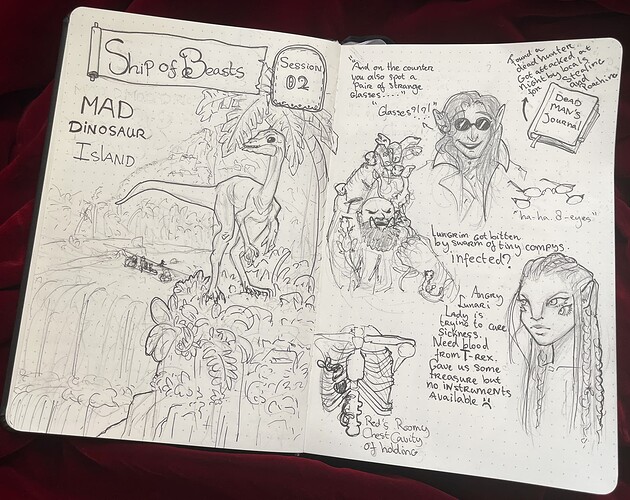 Ship of Beasts
Session
02
MAD
DINOSAUR
ISLAND
"And on the counter
you also spot a
Pair of strange
glasses....."
"Glasses?!?!"
Found a
dead hunter
Got attacked at
night by locals
for stealing
and
poaching
DEAD
MAN'S
JOURNAL
"ha-ha. 8-eyes"
Lungrim got bitten
by swarm of tiny compys.
infected?
Angry
Lunari
Lady is
trying to cure
sickness.
Need blood
from T-rex.
Gave us some
treasure but
no instruments
Available
Red's Roomy
Chest Cavity
of holding